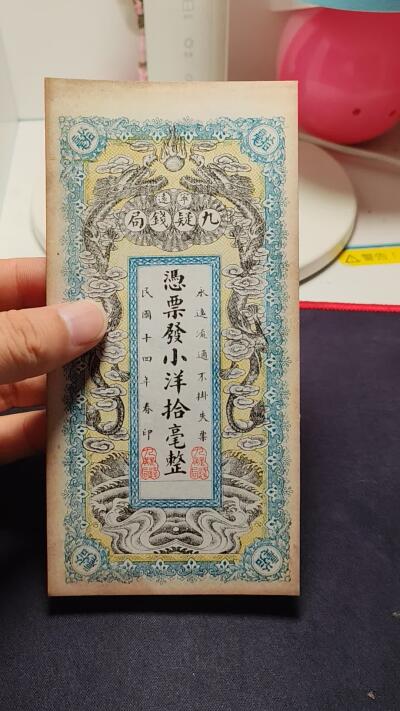 寧遠
九疑錢局
永遠流通不掛失票
憑票發小洋拾毫整
民國十四年春印
警告